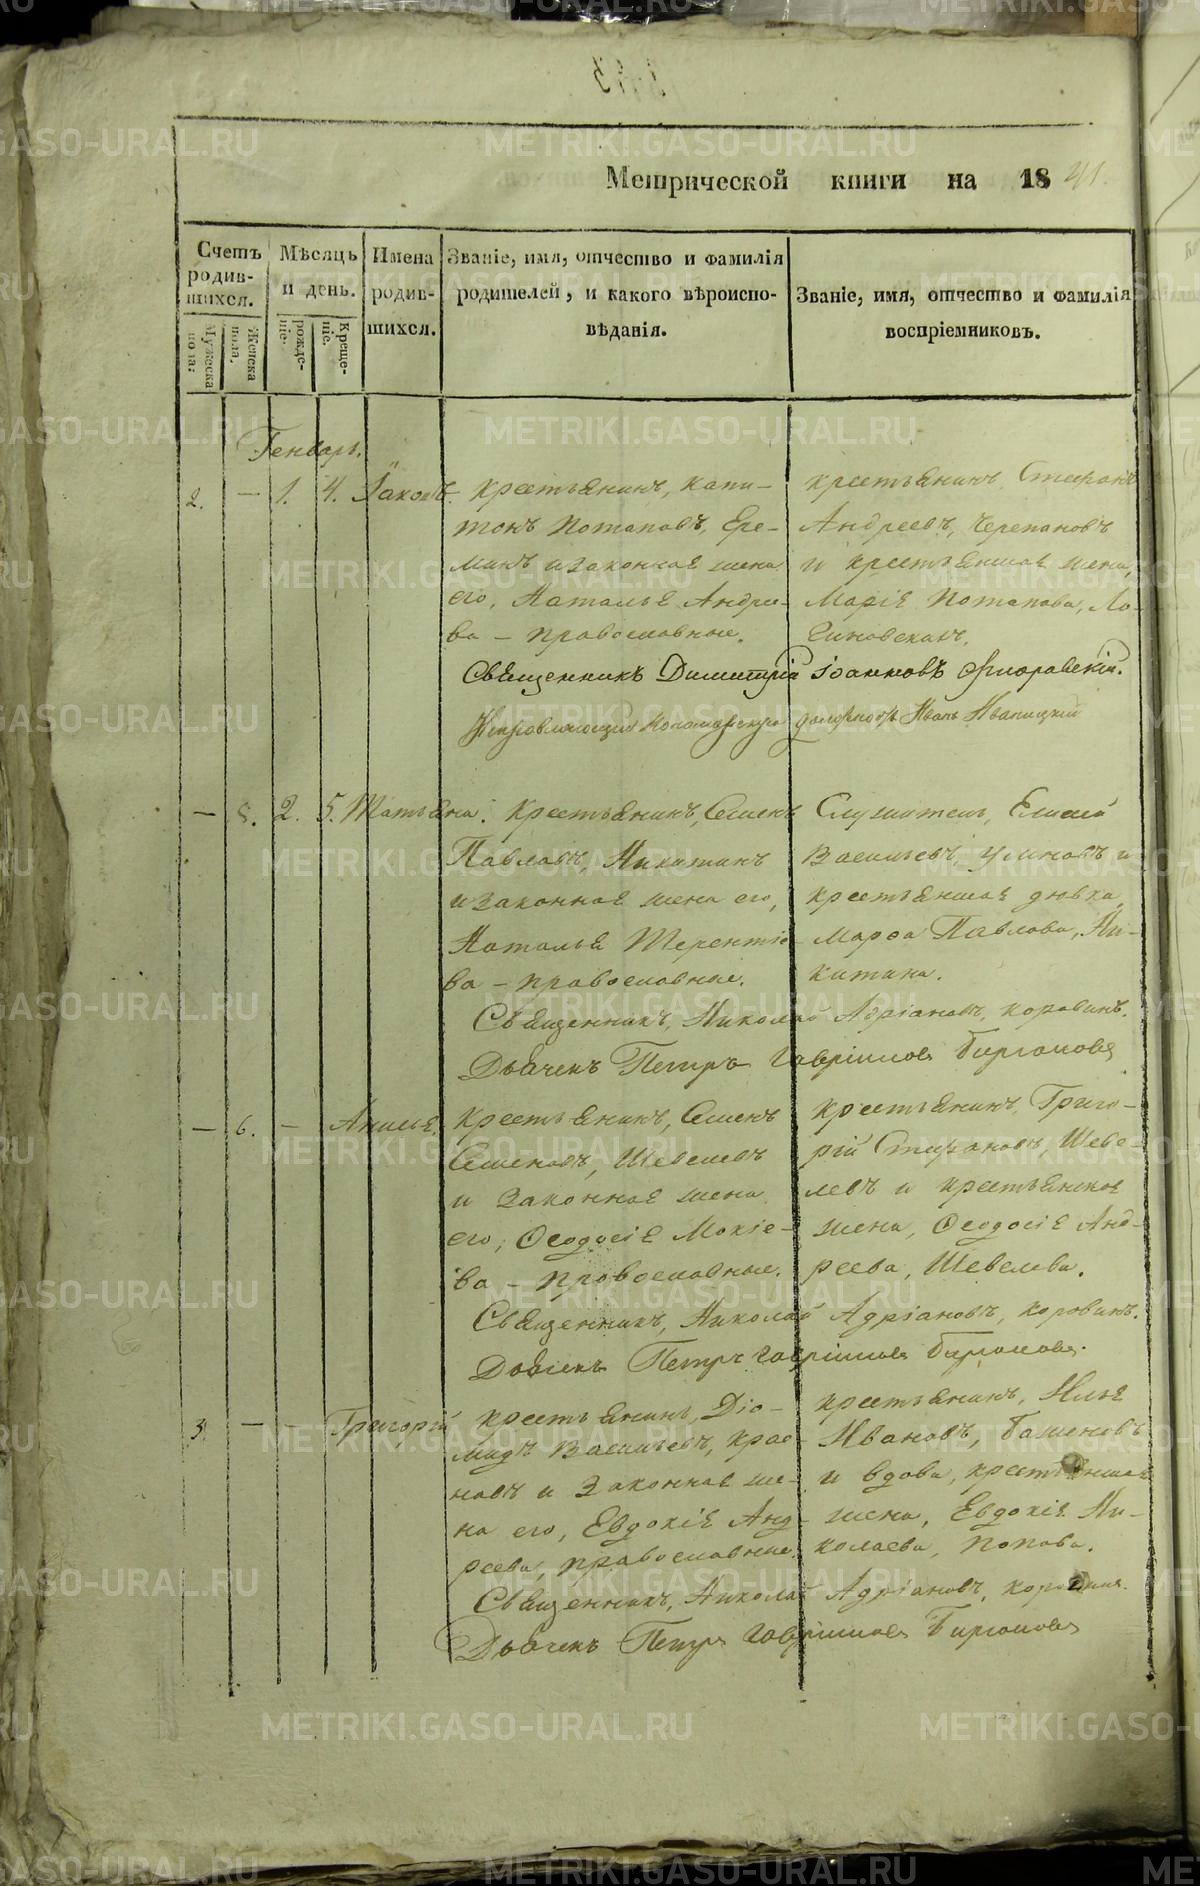 Метрической книги на 1841.
Счетъ родив-шихся.
Мужеска пола:
Женска пола.
Мѣсяцъ и день.
рожде-ніе.
Креще-ніе.
Имена родив-шихся.
Званіе, имя, отчество и фамилія
родителей, и какого вѣроиспо-
вѣданія.
Званіе, имя, отчество и фамилія
воспріемниковъ.
Генварь.
2. — 1. 4. Іаковъ.
крестьянинъ, Капи-
тонъ Потаповъ, Ере-
минъ и законная жена
его, Наталья Андрее-
ва – православные.
крестьянинъ, Стефанъ
Андреевъ, Черепановъ
и крестьянская жена,
Марія Потапова, Ло-
Священникъ Димитрій Іоанновъ Флоровскій.
Исправляющій Пономарскую должность Иванъ
— 5. 2. 5. Татьяна.
крестьянинъ, Семенъ
Павловъ, Никитинъ
и законная жена его,
Наталья Терентіе-
ва – православные.
Служитель, Елисей
Васильевъ, Улиновъ и
крестьянская дѣвка,
Марѳа Павлова, Ни-
китина.
Священникъ, Николай Адріановъ, Коровинъ.
Дьячекъ Петръ Гавріиловъ
— 6. — Анисья.
крестьянинъ, Семенъ
Семеновъ, Шевелевъ
и законная жена
его, Ѳеодосія Мокіе-
ва – православные.
крестьянинъ, Григо-
рій Стефановъ, Шеве-
левъ и крестьянская
жена, Ѳеодосія Анд-
реева, Шевелева.
Священникъ, Николай Адріановъ, Коровинъ.
Дьячекъ Петръ Гавріиловъ
3. — — Григорій
крестьянинъ, Діо-
мидъ Васильевъ, Крас-
новъ и законная же-
на его, Евдокія Анд-
реева, православные.
крестьянинъ, Илья
Ивановъ, Баженовъ
и вдова, крестьянская
жена, Евдокія Ни-
колаева, Попова.
Священникъ, Николай Адріановъ, Коровинъ.
Дьячекъ Петръ Гавріиловъ
METRIKI.GASO-URAL.RU